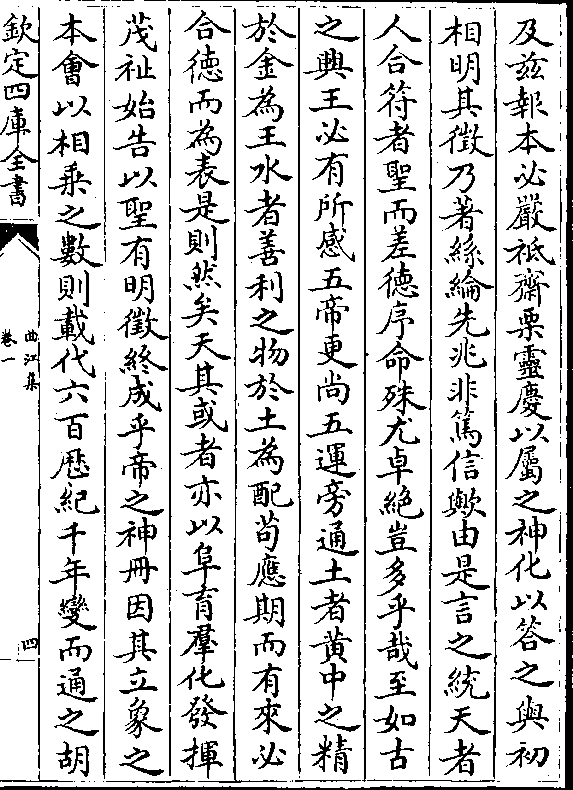 及兹報本必嚴祗齋栗靈慶以屬之神化以答之與初
相明其徵乃著絲綸先兆非篤信歟由是言之統天者
人合符者聖而差德序命殊尤卓絶豈多乎哉至如古
之興王必有所感五帝更尚五運旁通土者黄中之精
於金為王水者善利之物於土為配苟應期而有來必
合德而為表是則然矣天其或者亦以阜育羣化發揮
茂祉始告以聖有明徵終成乎帝之神册因其立象之
本會以相乗之數則載代六百厯紀千年變而通之胡
欽定四庫全書
曲江集
卷一
四